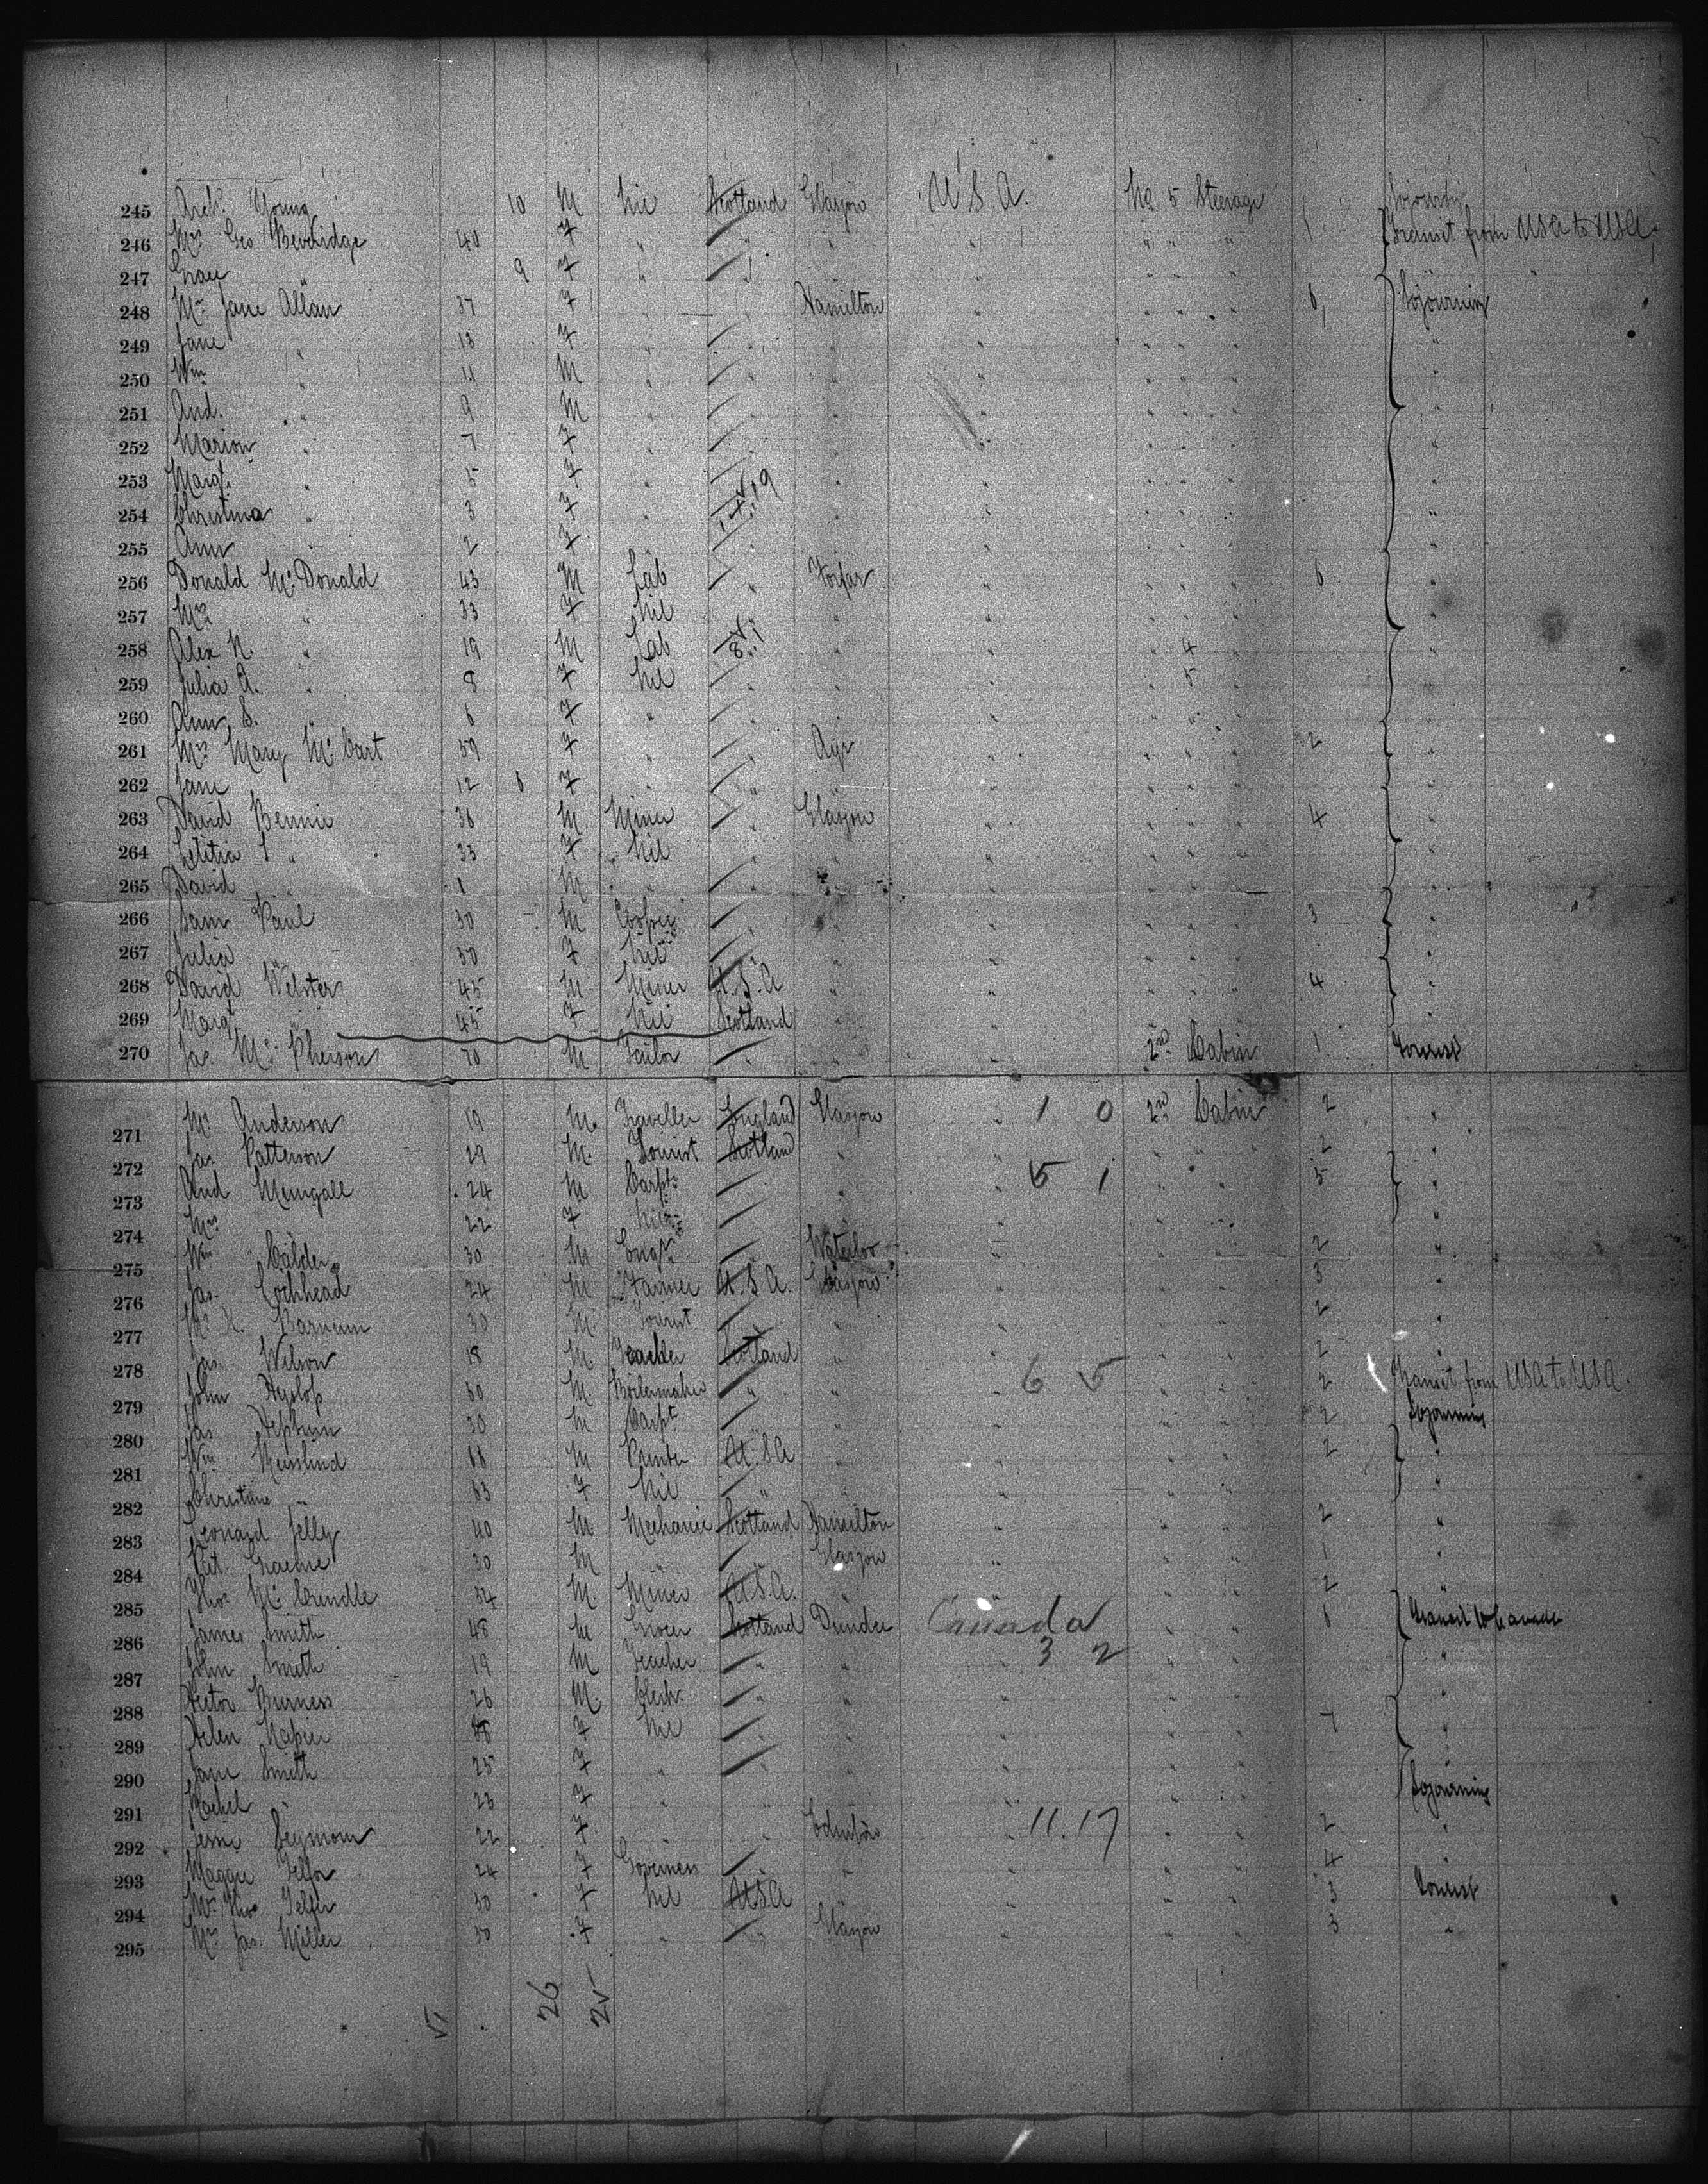 245 Arch. Young 10 M Nil Scotland Glasgow U S A. No 5 Steerage Sojourning
246 Mrs Geo Beveridge 40 F " " " " " " " 1 Transit from USA to USA.
247 Grace " 9 F " " " " " " " "
248 Mrs Jane Allan 37 F " " Hamilton " " " " 8 Sojourning
249 Jane " 13 F " " " " " " " "
250 Wm " 11 M " " " " " " " "
251 And. " 9 M " " " " " " " "
252 Marion " 7 F " " " " " " " "
253 Margt. " 5 F " " " " " " " "
254 Christina " 3 F " " " " " " " "
255 Ann " 2 F " " " " " " " "
256 Donald McDonald 43 M Lab " Forfar " " " " 6 "
257 Mrs " 33 F Nil " " " " " " "
258 Alex N. " 19 M Lab " " " " 4 " "
259 Julia A. " 8 F Nil " " " " 5 " "
260 Ann S. " 6 F " " " " " " " "
261 Mrs Mary McCart 39 F " " Ayr " " " " 2 "
262 Jane " 12 F " " " " " " " "
263 David Bennie 36 M Miner " Glasgow " " " " 4 "
264 Letitia " 33 F Nil " " " " " " "
265 David " 1 M " " " " " " " "
266 Sam Paul 30 M Cooper " " " " " " 3 "
267 Julia " 30 F Nil " " " " " " "
268 David Webster 45 M Miner U.S.A " " " " " 4 "
269 Margt " 45 F Nil Scotland " " " " " "
270 Jas. McPherson 70 M Tailor " " " 2nd Cabin 1 Tourist
271 Mr Anderson 19 M. Traveller England Glasgow " 1 0 2nd Cabin 2 "
272 Jas. Patterson 29 M. Tourist Scotland " " " " 2 "
273 And Mungall 24 M Carptr " " " 5 1 " " 5 "
274 Mrs 22 F Nil " " " " " "
275 Wm Calder 30 M Engr " Waterloo " " " 2 "
276 Jas. Lochhead 24 M Farmer U.S.A. Glasgow " " " 3 "
277 Barnum 30 M Tourist " " " " " 2 "
278 Jas. Wilson 18 M. Scotland " " " " 2 "
279 John Hyslop 50 M. Boilermaker " " " 6 5 " " 2 Transit from USA to USA.
280 Jas 30 M Carpt " " " " " 2 Sojourning
281 Wm M Painter U.S.A " " " " 2 "
282 Christina " 63 F Nil " " " " " "
283 Leonard Jelly 40 M Mechanic Scotland Hamilton " " " 2 "
284 Graeme 30 M " " Glasgow " " " 1 "
285 Thos McCrindle 34 M. Miner U.S.A. " " " " 2 "
286 James Smith 48 M Grocer Scotland Dundee Canada " " 6 Transit to Canada
287 John Smith 19 M Teacher " " 3 2 " " "
288 Hector Burness 26 M. Clerk " " " " "
289 Helen Napier F Nil " " " " 7 "
290 Jane Smith 25 F " " " " " "
291 Rachel " 23 F " " " " Sojourning
292 Jessie Seymour 22 F " " Edinboro 11. 17 " " 2 "
293 Maggie Telfer 24 F Governess " " " " 4 "
294 Mrs Thos Telfer 50 F Nil U.S.A " " " 3 Tourist
295 Mrs Jas. Miller 50 F " " Glasgow " " 3 "
26 25